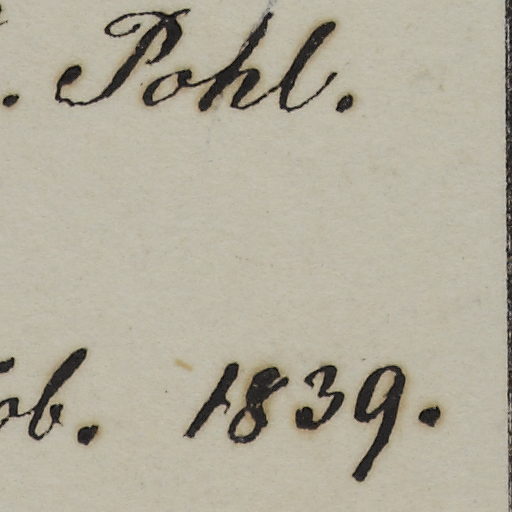 . Pohl.
ob. 1839.